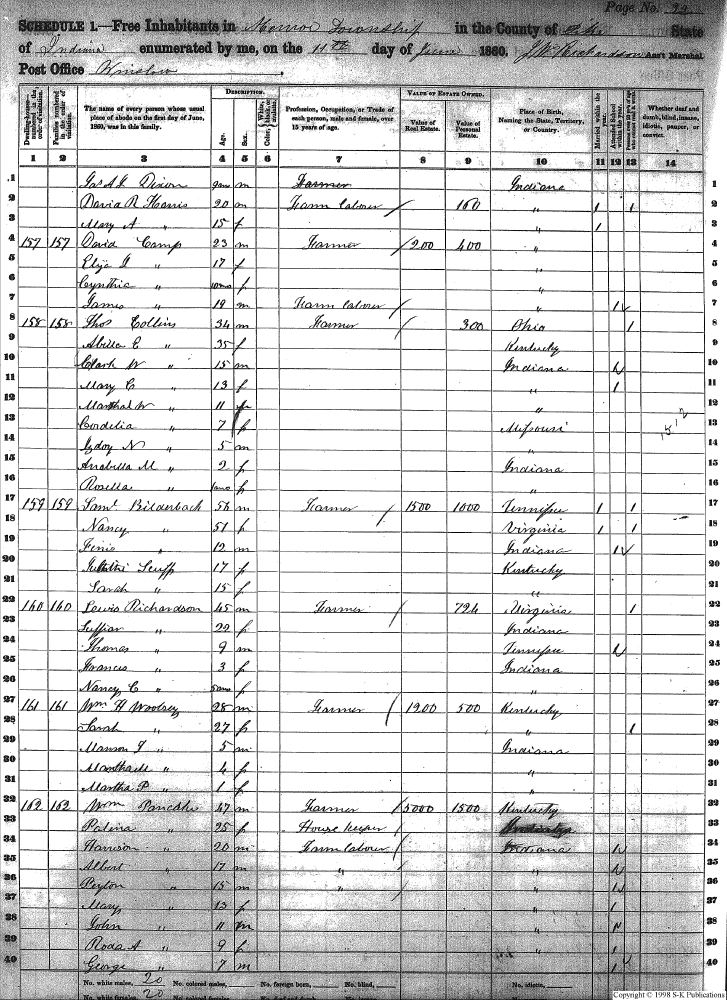 Page No. 22
SCHEDULE 1.—Free Inhabitants in Monroe Township in the County of Pike State
of Indiana enumerated by me, on the 11th day of June 1860. J. W. Richardson Ass't Marshal.
Post Office Winslow
Dwelling-houses numbered in the order of visitation. Families numbered in the order of visitation. The name of every person whose usual place of abode on the first day of June, 1860, was in this family. DESCRIPTION. Age. Sex. Color, White, black, or mulatto. Profession, Occupation, or Trade of each person, male and female, over 15 years of age. VALUE OF ESTATE OWNED. Value of Real Estate. Value of Personal Estate. Place of Birth, Naming the State, Territory, or Country. Married within the year. Attended School within the year. Whether deaf and dumb, blind, insane, idiotic, pauper, or convict.
1 2 3 4 5 6 7 8 9 10 11 12 13 14
1 Jas A Dixon m Farmer Indiana 1
2 David R Harris 20 m Farm laborer / 160 " 1 1 2
3 Mary A " 15 f " 1 3
4 157 157 David Camp 23 m Farmer / 200 400 " 4
5 " 17 f " 5
6 Cynthia " f " 6
7 James " 19 m Farm laborer / " 1 7
8 158 158 Thos Collins 34 m Farmer / 300 Ohio 1 8
9 E " 35 f Kentucky 9
10 Clark W " 15 m Indiana 10
11 Mary C " 13 f " 1 11
12 W " 11 " 12
13 Cordelia " 7 f Missouri 13
14 N " 5 m " 14
15 Anabella M " 2 f Indiana 15
16 Rosella " f " 16
17 159 159 Saml Bilderback 56 m Farmer / 1500 1000 Tennessee 1 1 17
18 Nancy " 51 f Virginia 1 1 18
19 " 12 m Indiana 1 19
20 17 f Kentucky 20
21 Sarah " 15 f " 21
22 160 160 Lewis Richardson 45 m Farmer / 724 Virginia 1 22
23 " 22 f Indiana 23
24 Thomas " 9 m Tennessee 24
25 Frances " 3 f Indiana 25
26 Nancy C " f " 26
27 161 161 Wm H Woolsey 28 m Farmer / 1200 500 Kentucky 27
28 Sarah " 27 f " 1 28
29 " 5 m Indiana 29
30 Martha M " 4 f " 30
31 Martha P " 1 f " 31
32 162 162 Wm Pancake 47 m Farmer / 5000 1500 Kentucky 32
33 " 25 f House keeper / 33
34 Harrison " 20 m Farm laborer / Indiana 34
35 Albert " 17 m " / " 35
36 Peyton " 15 m " / " 36
37 Mary " 13 f " 1 37
38 John " 11 m " 38
39 Roda A " 9 f " 1 39
40 George " 7 m " 40
No. white males, 20 No. colored males, No. foreign born, No. blind, No. idiotic,
No. white females, 20
Copyright © 1998 S-K Publications